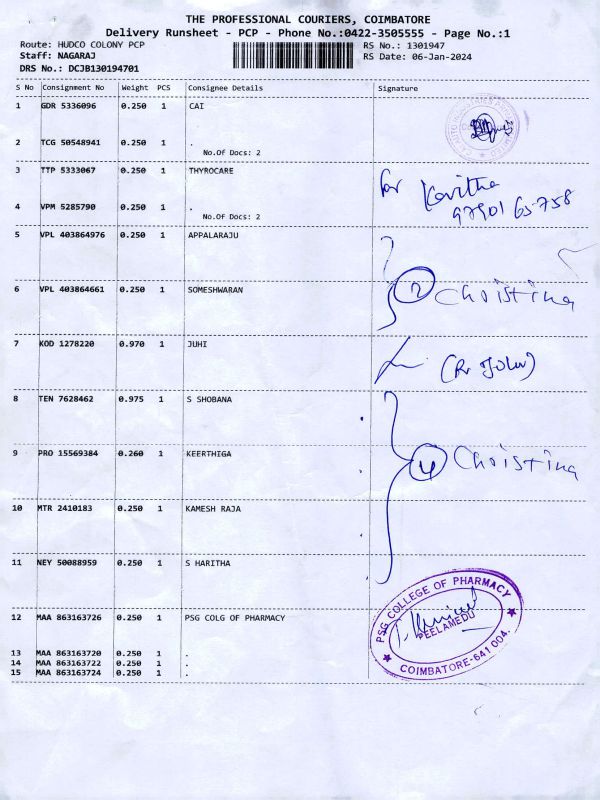 THE PROFESSIONAL COURIERS, COIMBATORE
Delivery Runsheet - PCP - Phone No.:0422-3505555 - Page No.:1
Route: HUDCO COLONY PCP
Staff: NAGARAJ
DRS No.: DCJB130194701
RS No.: 1301947
RS Date: 06-Jan-2024
S No Consignment No Weight PCS Consignee Details Signature
1 GDR 5336096 0.250 1 CAI
2 TCG 50548941 0.250 1 .
No.Of Docs: 2
3 TTP 5333067 0.250 1 THYROCARE
for Kavitha
97901 65758
4 VPM 5285790 0.250 1 .
No.Of Docs: 2
5 VPL 403864976 0.250 1 APPALARAJU
6 VPL 403864661 0.250 1 SOMESHWARAN
2 Christina
7 KOD 1278220 0.970 1 JUHI
8 TEN 7628462 0.975 1 S SHOBANA
9 PRO 15569384 0.260 1 KEERTHIGA
4 Christina
10 MTR 2410183 0.250 1 KAMESH RAJA
11 NEY 50088959 0.250 1 S HARITHA
12 MAA 863163726 0.250 1 PSG COLG OF PHARMACY
PSG COLLEGE OF PHARMACY
PEELAMEDU
COIMBATORE-641 004.
13 MAA 863163720 0.250 1 .
14 MAA 863163722 0.250 1 .
15 MAA 863163724 0.250 1 .